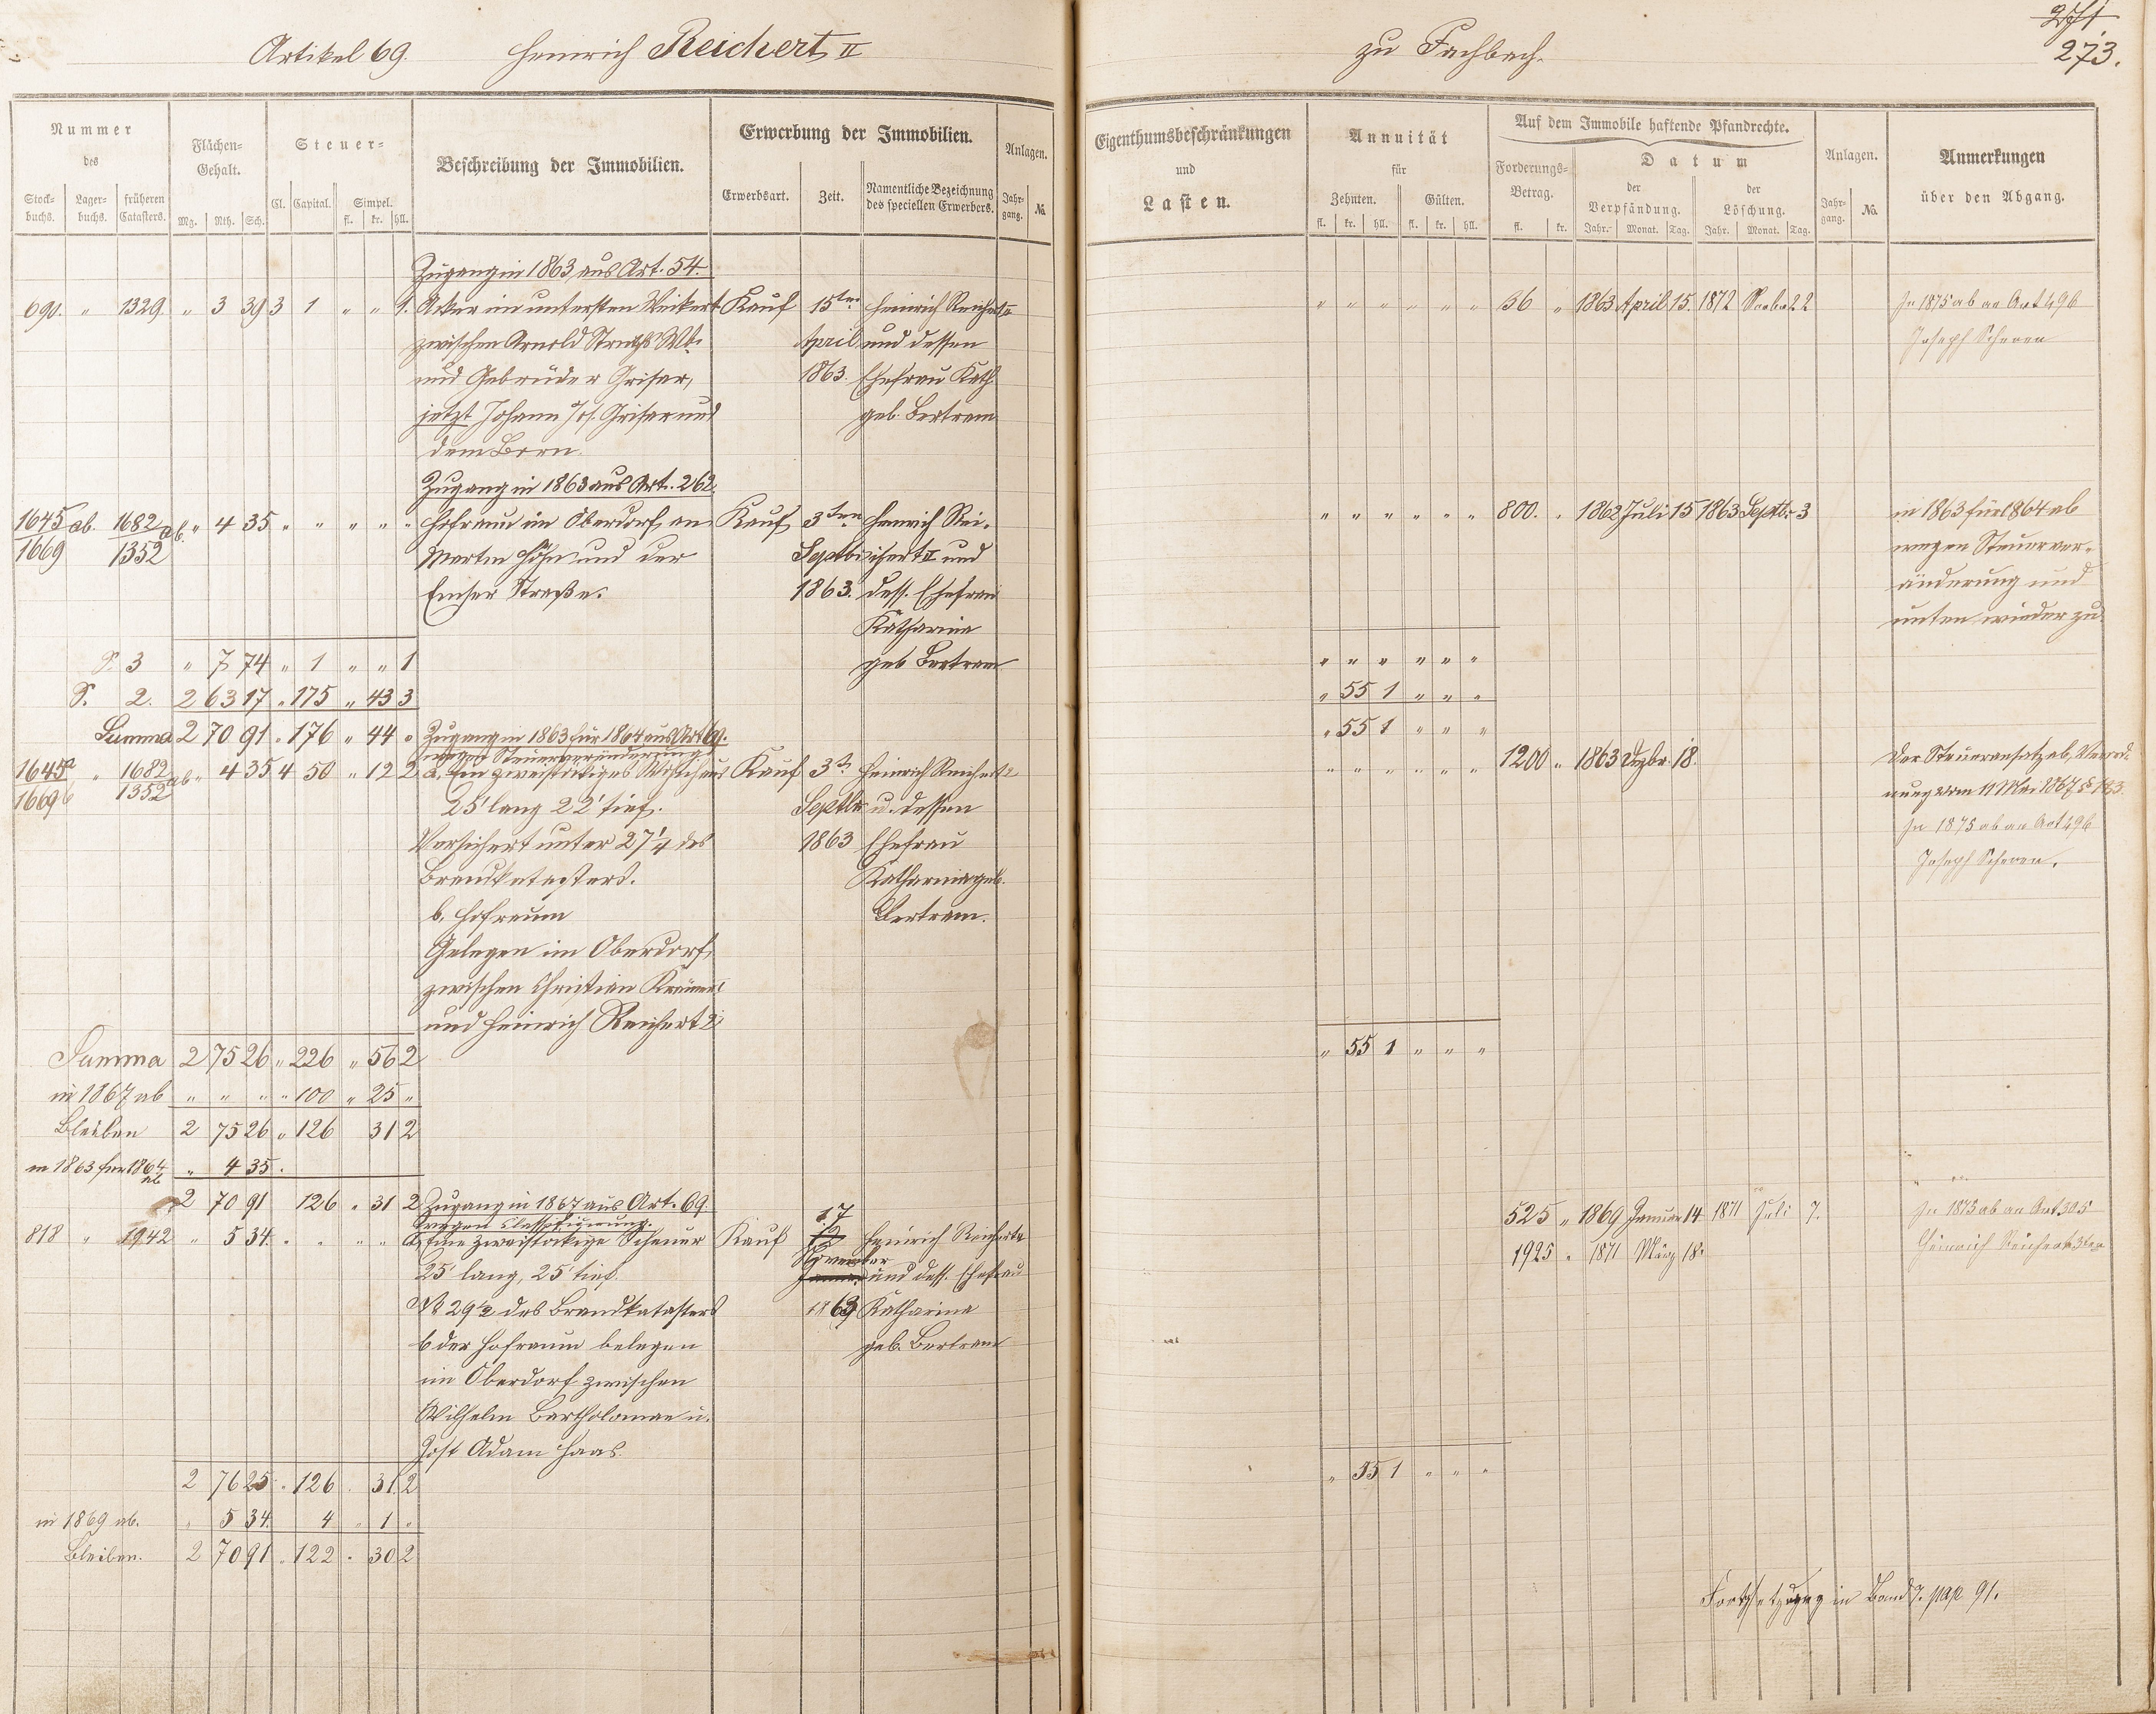 Artikel 69. Heinrich Reichert II
zu Fachbach.
271
273.
Nummer
des
Stock-buchs. Lager-buchs. früheren Catasters.
Flächen-Gehalt.
Mg. Rth. Sch.
Steuer-
Cl. Capital. Simpel.
fl. kr. hll.
Beschreibung der Immobilien.
Erwerbung der Immobilien.
Erwerbsart. Zeit. Namentliche Bezeichnung des speciellen Erwerbers.
Anlagen.
Jahr-gang. No.
Eigenthumsbeschränkungen
und
Lasten.
Annuität
für
Zehnten. Gülten.
fl. kr. hll. fl. kr. hll.
Auf dem Immobile haftende Pfandrechte.
Forderungs-Betrag.
fl. kr.
Datum
der Verpfändung. der Löschung.
Jahr. Monat. Tag. Jahr. Monat. Tag.
Anlagen.
Jahr-gang. No.
Anmerkungen
über den Abgang.
Zugang in 1863 aus Art. 54.
690. " 1329 " 3 39 3 1 " " 1. Acker im untersten Weikert Kauf 15ten Heinrich Reichert II
zwischen Arnold April und dessen
und Gebrüder Griser, 1863. Ehefrau Kath.
jetzt Johann Jos. Griser und geb. Bertram
dem Born.
" " " " " " 36 " 1863 April 15. 1872 22
In 1875 ab an Art 496
Joseph Scheren
Zugang in 1863 aus Art. 262.
1645 ab. 1682 ab. " 4 35 " " " " " Hofraum im Oberdorf, an Kauf 3ten Heinrich Rei-
1669 1352 Martin Höhn und der Septbr ichert II und
Emser Straße. 1863. dess. Ehefrau
Katharina
geb Bertram
" " " " " " 800. " 1862 Juli 15 1863 Septbr 3
in 1863 für 1864 ab
wegen Steuerver-
änderung und
unten wieder zu
S. 3 " 7 74 " 1 " " 1
" " " " " "
S. 2. 2 63 17 " 175 " 43 3
" 55 1 " " "
Summa 2 70 91 " 176 " 44 " Zugang in 1863 für 1864 aus Art 69.
wegen Steuerveränderung
" 55 1 " " "
1645a " 1682 ab " 4 35 4 50 " 12 2 a. Ein zweistöckiges Wohnhaus Kauf 3ten Heinrich Reichert 2
1669 b 1352 25' lang 22' tief. Septbr u. dessen
Versichert unter 27 1/4 des 1863 Ehefrau
Brandkatasters. Katharina geb.
b. Hofraum Bertram.
Gelegen im Oberdorf,
zwischen Christian Krämer
und Heinrich Reichert 2
" " " " " " 1200 " 1863 Dezbr. 18.
Der Steueransatz ab, Verord-
nung vom 11 Mai 1867 § 183
In 1875 ab an Art 496
Joseph Scheren.
Summa 2 75 26 " 226 " 56 2
" 55 1 " " "
in 1867 ab " " " " 100 " 25 "
Bleiben 2 75 26 " 126 31 2
in 1863 für 1864 ab " 4 35.
2 70 91 126 " 31 2 Zugang in 1867 aus Art. 69.
wegen
818 " 1942 " 5 34. " " " " a, Eine zweistöckige Scheuer Kauf 17 Heinrich Reichert 2
25' lang, 25' tief. November und dess. Ehefrau
No 29 1/2 des Brandkatasters 1863 Katharina
b der Hofraum belegen geb. Bertram
im Oberdorf zwischen
Wilhelm Bartholomae u.
Jost Adam Haas.
525 " 1869 Januar 14 1871 Juli 7.
1925 " 1871 März 18.
In 1875 ab an Art 305
Heinrich Reichert 3ten
2 76 25 " 126 " 31. 2
" 55 1 " " "
in 1869 ab. " 5 34. 4 " 1 "
Bleiben. 2 70 91 " 122 " 30 2
Fortsetzung in Band 7. pag 91.